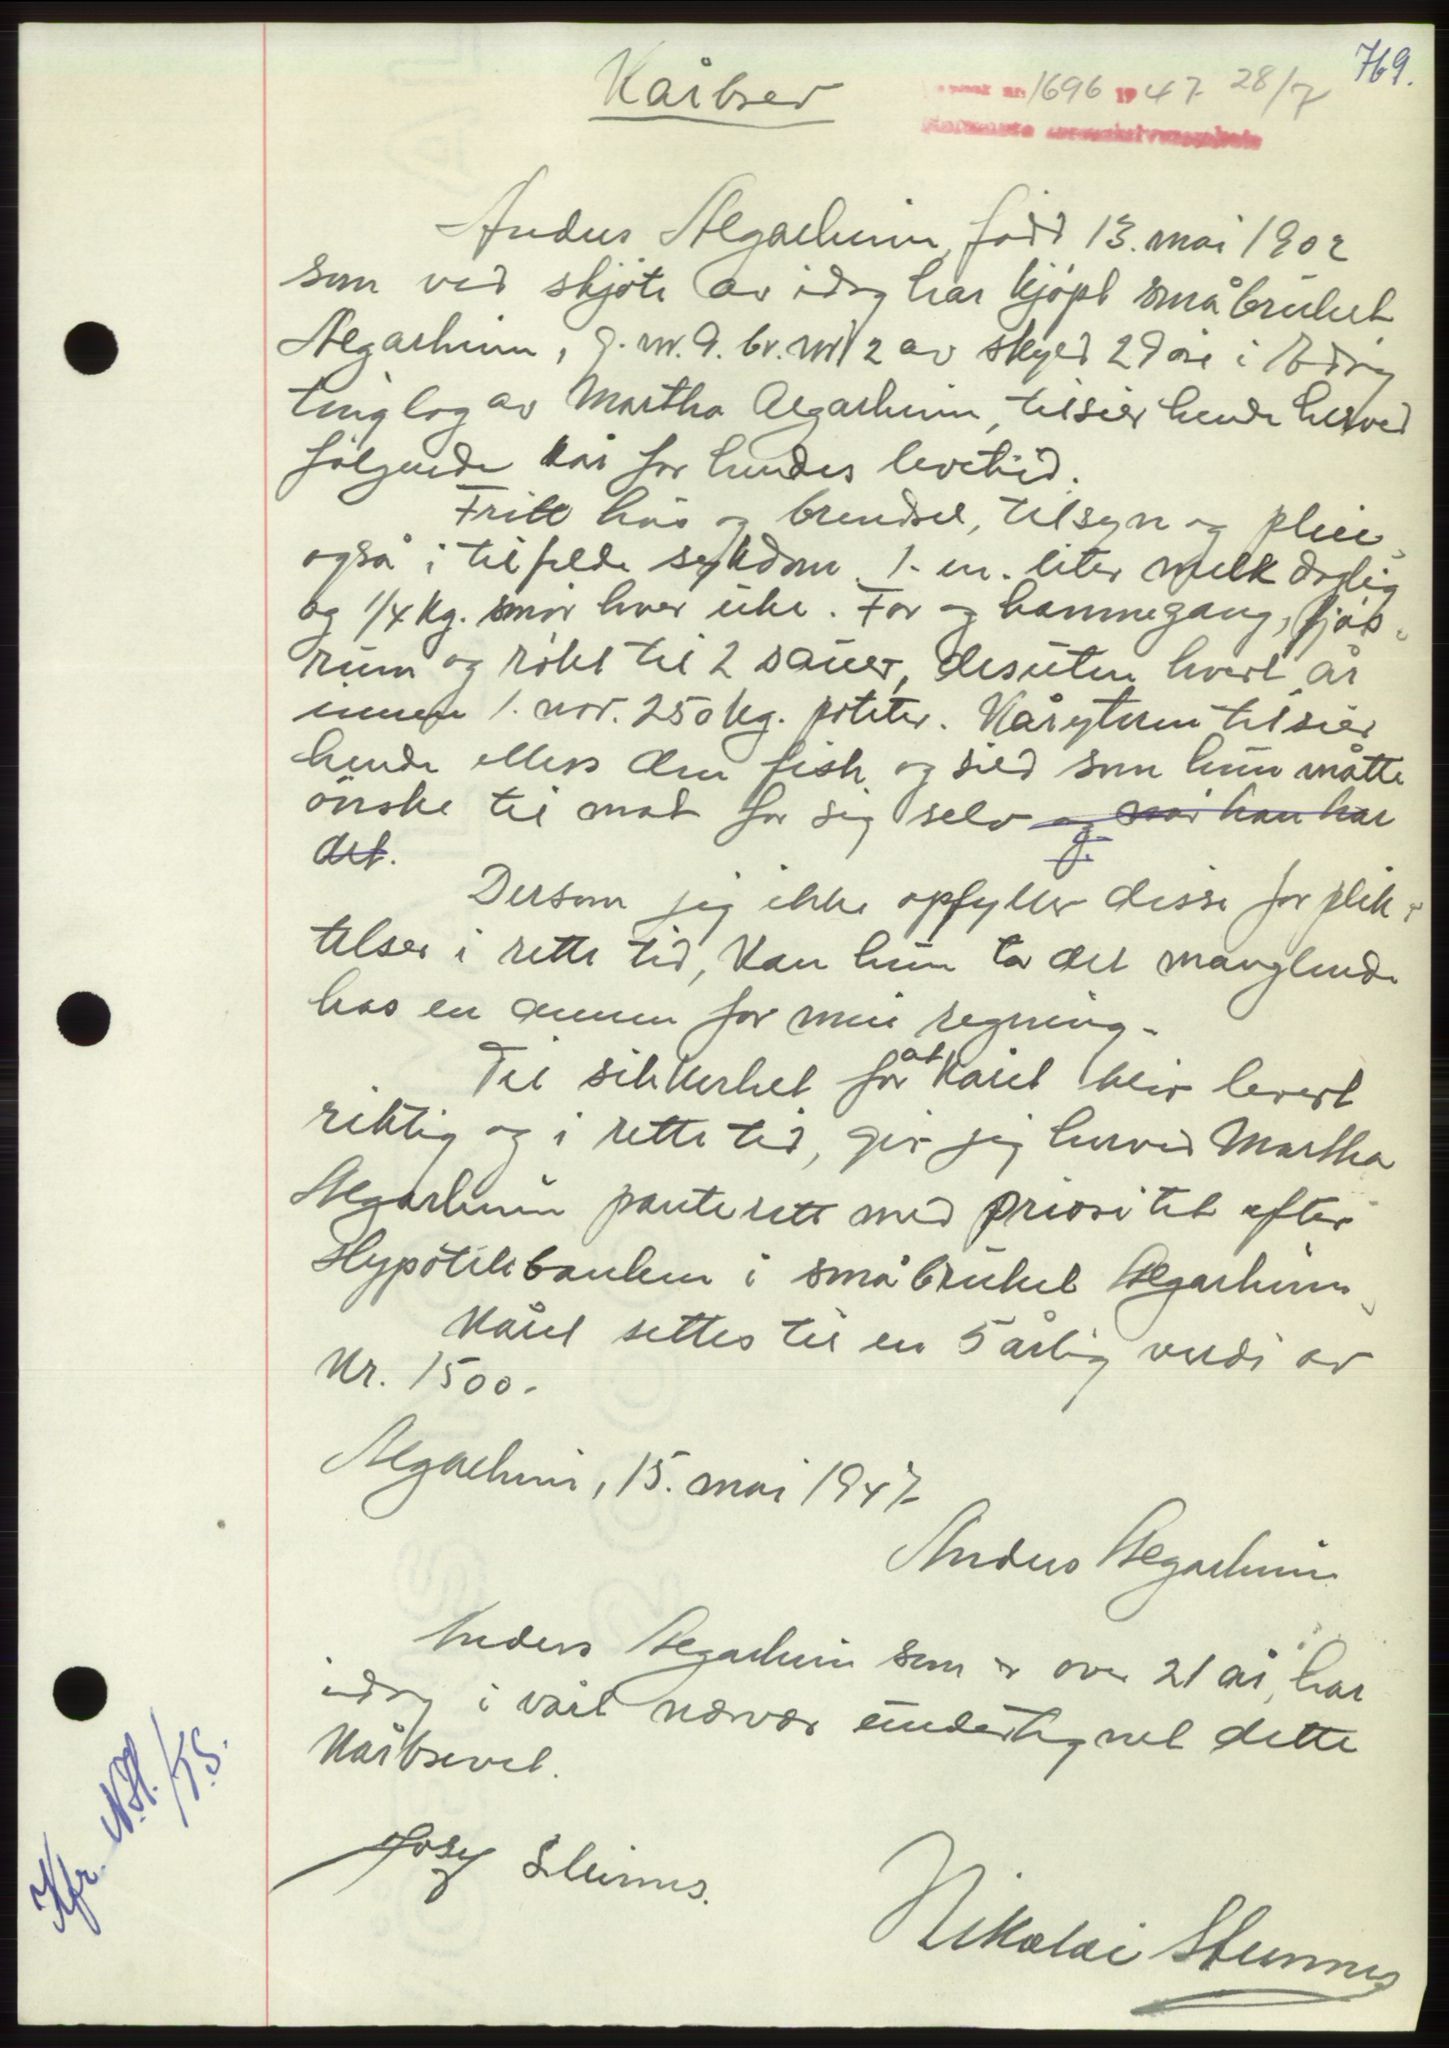 769.
Kårbrev
1696 1947 28/7
Anders Ægarheim, född 13. mai 1902
som ved skjöte av idag har kjöpt småbruket
Ægarheim, g. nr. 9. br. nr. 12 av skyld 29 öre i
tinglag av Martha Ægarheim, tilsier hende herved
fölgende kår for hendes levetid.
Fritt hus og brendsel, tilsyn og pleie,
også i tilfelde sykdom. 1- en. liter melk daglig
og 1/4 kg. smör hver uke. For og havnegang, fjös-
rum og rökt til 2 sauer, desuten hvert år
innen 1. nov. 250 kg. poteter. Kårytern tilsier
hende ellers den fisk og sild som hun måtte
önske til mat for sig selv og når han har
det.
Dersom jeg ikke opfyller disse forplik-
telser i rette tid, kan hun ta det manglende
hos en annen for min regning.-
Til sikkerhet for at kåret blir levert
riktig og i rette tid, gir jeg herved Martha
Ægarheim panterett med prioritet efter
Hypotekbanken i småbruket Ægarheim.
Kåret settes til en 5 årlig verdi av
Kr. 1500.-
Ægarheim, 15. mai 1947
Anders Ægarheim
Anders Ægarheim som er over 21 år, har
idag i vårt nærvær undertegnet dette
Kårbrevet.
Steinnes.
Nikolai Steinnes
Kfr. N.H./T.S.